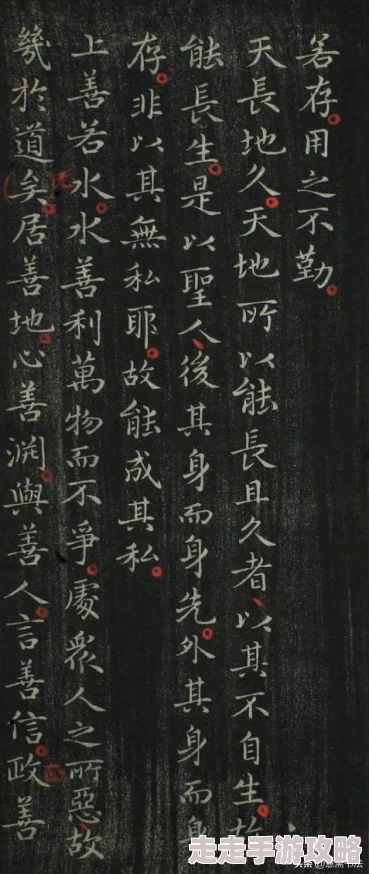 若存。用之不勤。
天長地久。天地所以能長且久者、以其不自生。故
能長生。是以聖人、後其身而身先。外其身而身
存。非以其無私耶。故能成其私。
上善若水。水善利萬物而不爭。處衆人之所惡、故
幾於道矣。居善地。心善淵。與善人。言善信。政善
走走手游攻略